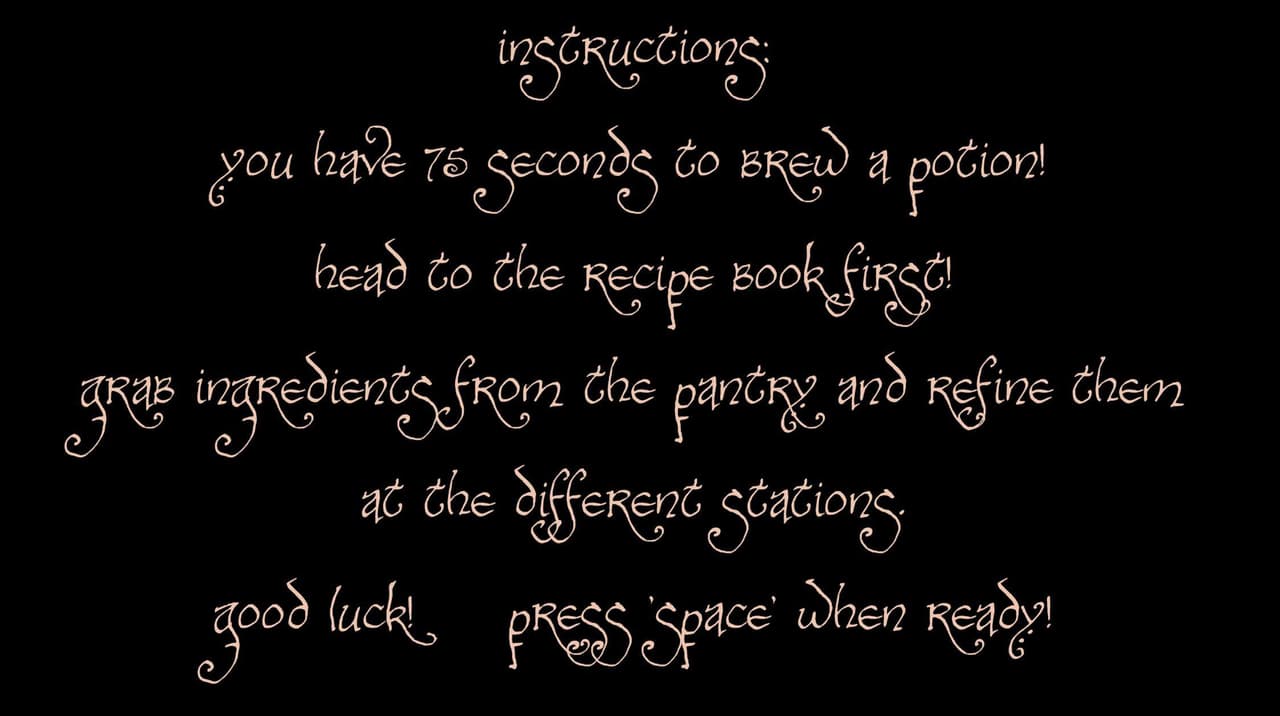 instructions:
you have 75 seconds to brew a potion!
head to the recipe book first!
grab ingredients from the pantry and refine them
at the different stations.
good luck! press 'space' when ready!